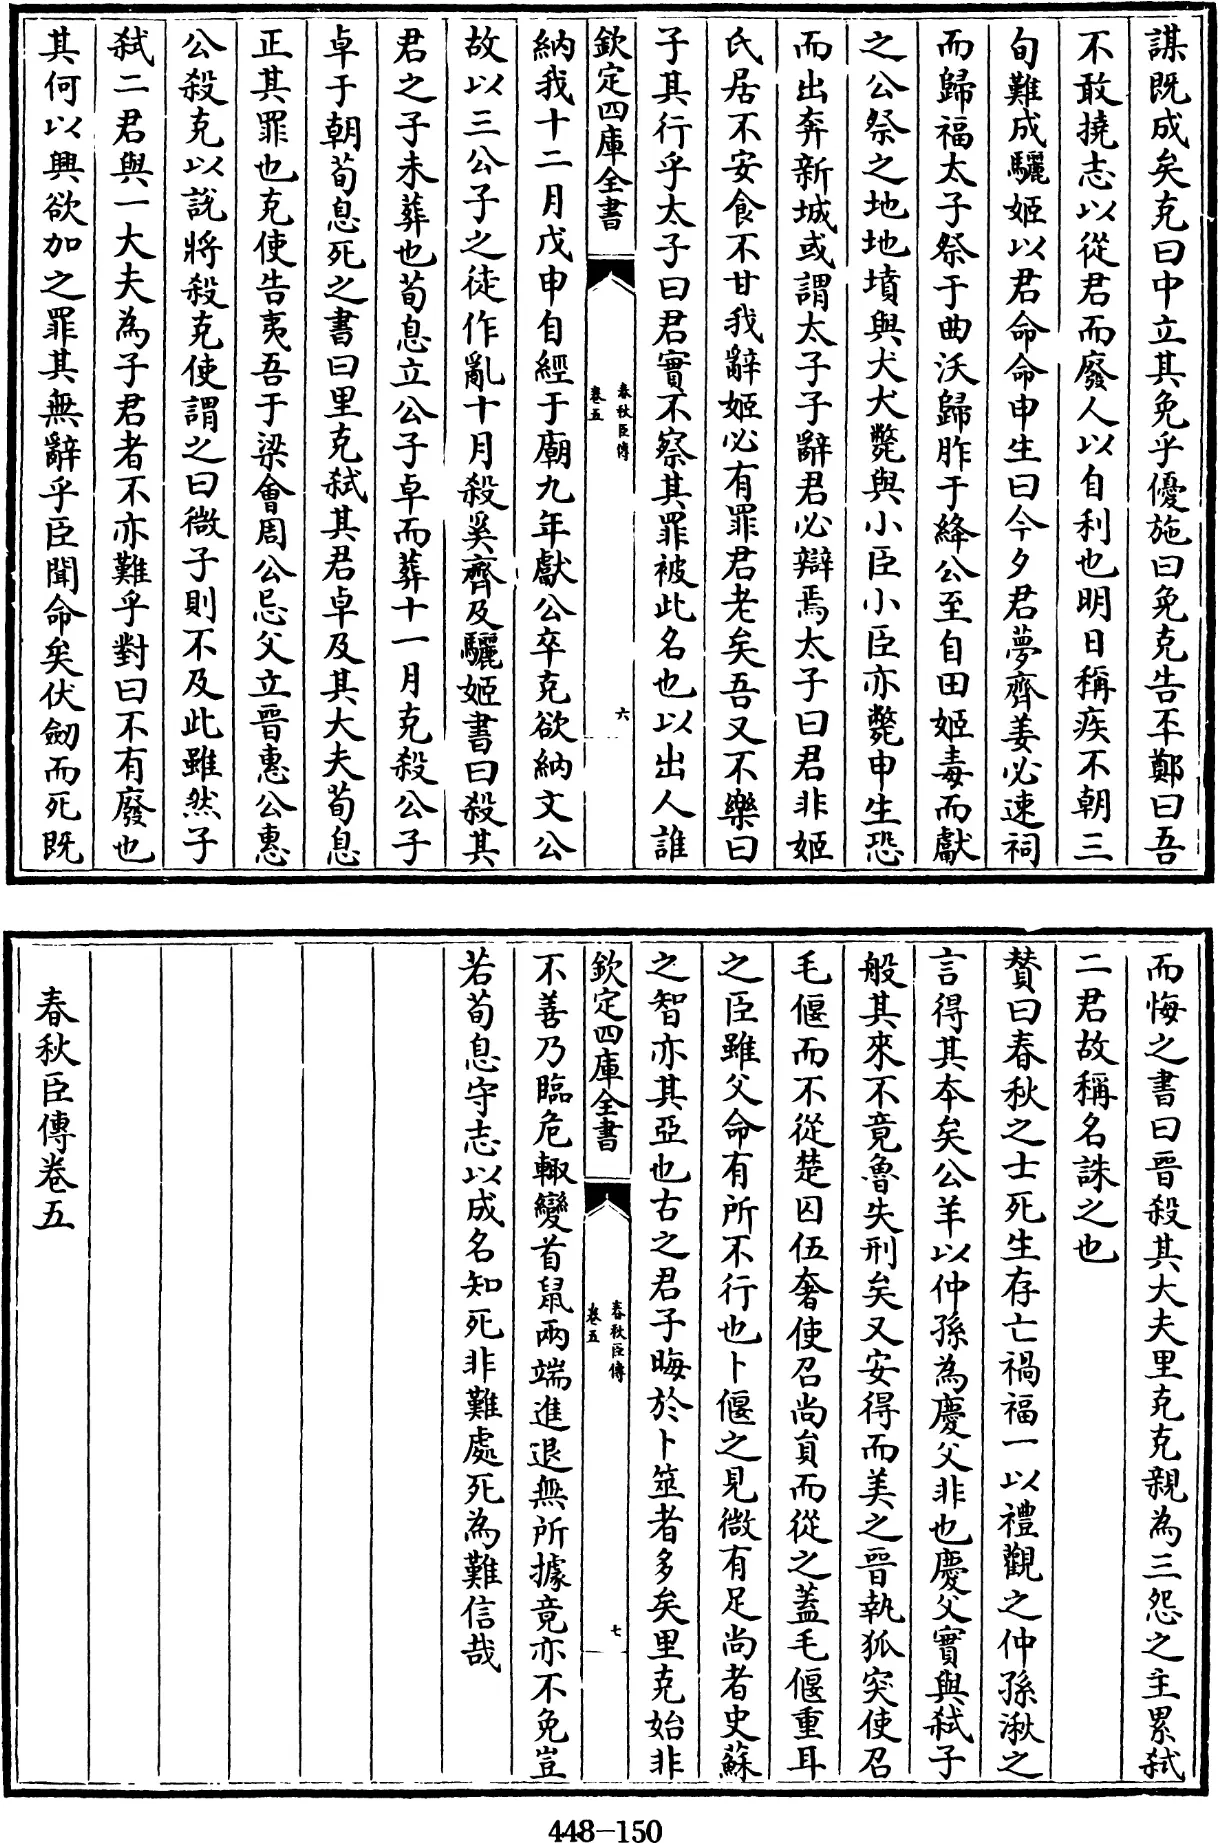 謀既成矣克曰中立其免乎優施曰免克告丕鄭曰吾
不敢撓志以從君而廢人以自利也明日稱疾不朝三
旬難成驪姬以君命命申生曰今夕君夢齊姜必速祠
而歸福太子祭于曲沃歸胙于絳公至自田姬毒而獻
之公祭之地地墳與犬犬斃與小臣小臣亦斃申生恐
而出奔新城或謂太子子辭君必辯焉太子曰君非姬
氏居不安食不甘我辭姬必有罪君老矣吾又不樂曰
子其行乎太子曰君實不察其罪被此名也以出人誰
欽定四庫全書
春秋臣傳
卷五
六
納我十二月戊申自經于廟九年獻公卒克欲納文公
故以三公子之徒作亂十月殺奚齊及驪姬書曰殺其
君之子未葬也荀息立公子卓而葬十一月克殺公子
卓于朝荀息死之書曰里克弒其君卓及其大夫荀息
正其罪也克使告夷吾于梁會周公忌父立晉惠公惠
公殺克以說將殺克使謂之曰微子則不及此雖然子
弒二君與一大夫為子君者不亦難乎對曰不有廢也
其何以興欲加之罪其無辭乎臣聞命矣伏劒而死既
而悔之書曰晉殺其大夫里克克親為三怨之主累弒
二君故稱名誅之也
贊曰春秋之士死生存亡禍福一以禮觀之仲孫湫之
言得其本矣公羊以仲孫為慶父非也慶父實與弒子
般其來不竟魯失刑矣又安得而美之晉執狐突使召
毛偃而不從楚囚伍奢使召尚貟而從之蓋毛偃重耳
之臣雖父命有所不行也卜偃之見微有足尚者史蘇
之智亦其亞也古之君子晦於卜筮者多矣里克始非
欽定四庫全書
春秋臣傳
卷五
七
不善乃臨危輙變首鼠兩端進退無所據竟亦不免豈
若荀息守志以成名知死非難處死為難信哉
春秋臣傳卷五
448-150